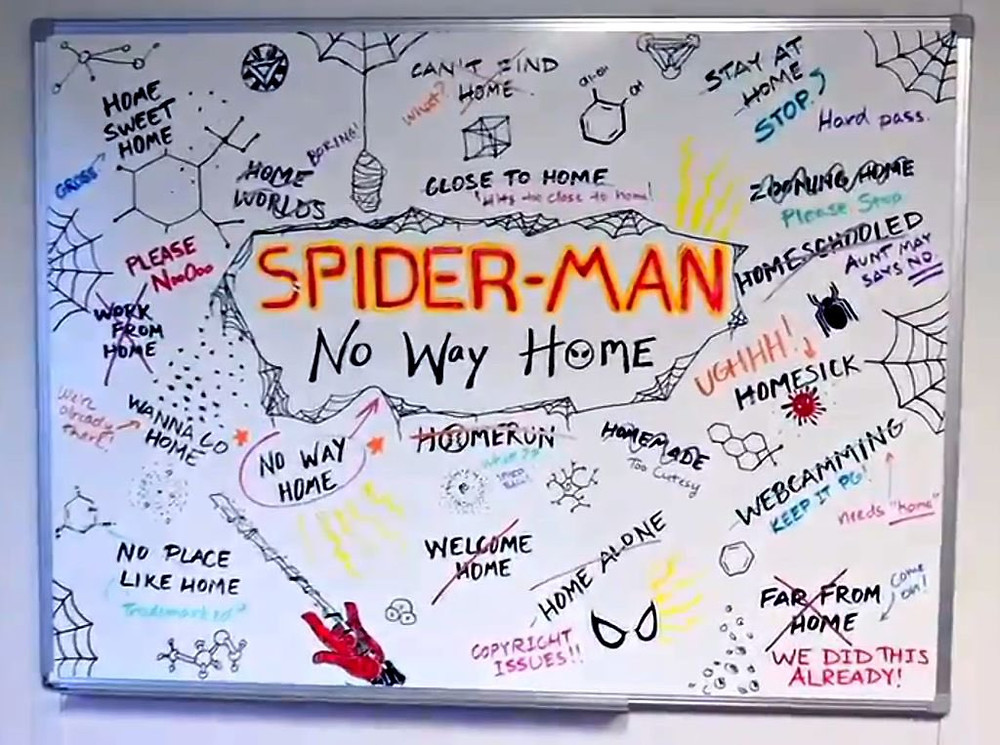 HOME
SWEET
HOME
GROSS
CAN'T FIND
HOME
What?
CH-OH
OH
STAY AT
HOME
STOP.
Hard pass.
BORING!
HOME
WORLDS
CLOSE TO HOME
Hits too close to home!
ZOOMING HOME
Please Stop
HOMESCHOOLED
AUNT MAY
SAYS NO.
PLEASE
NoOOoo
WORK
FROM
HOME
SPIDER-MAN
No Way Home
UGHHH!
HOMESICK
We're
already
there!
WANNA GO
HOME
NO WAY
HOME
HOOMERUN
What??
HOMEMADE
Too Cutesy
WEBCAMMING
KEEP IT PG!
needs "home"
NO PLACE
LIKE HOME
Trademarked?
WELCOME
HOME
HOME ALONE
COPYRIGHT
ISSUES!!
FAR FROM
HOME
Come
on!
WE DID THIS
ALREADY!